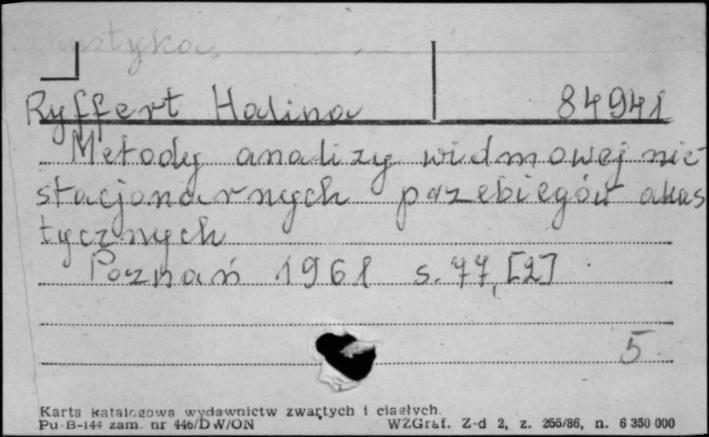 Akustyka
Ryffert Halina 84941
Metody analizy widmowej nie-
stacjonarnych przebiegów akus
tycznych
Poznań 1961 s. 77, [2]
5
Karta katalogowa wydawnictw zwartych i ciągłych.
Pu-B-144 zam. nr 446/DW/ON WZGraf. Z-d 2, z. 266/86, n. 6 350 000